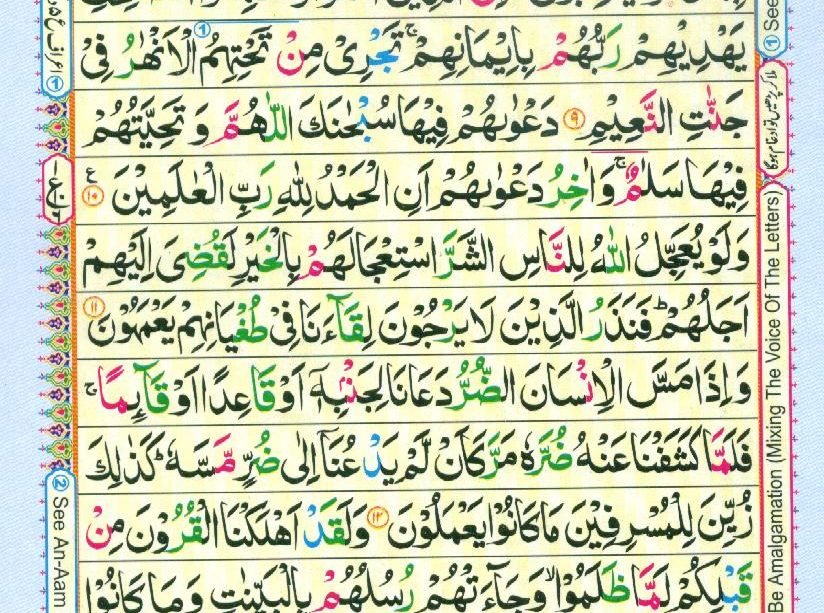 يَهْدِيْهِمْ رَبُّهُمْ بِاِيْمَانِهِمْ ۚ تَجْرِىْ مِنْ تَحْتِهِمُ الْاَنْهٰرُ فِىْ
جَنّٰتِ النَّعِيْمِ ۹ دَعْوٰىهُمْ فِيْهَا سُبْحٰنَكَ اللّٰهُمَّ وَ تَحِيَّتُهُمْ
فِيْهَا سَلٰمٌ ۚ وَاٰخِرُ دَعْوٰىهُمْ اَنِ الْحَمْدُ لِلّٰهِ رَبِّ الْعٰلَمِيْنَ ۱۰ ع
وَلَوْ يُعَجِّلُ اللّٰهُ لِلنَّاسِ الشَّرَّ اسْتِعْجَالَهُمْ بِالْخَيْرِ لَقُضِىَ اِلَيْهِمْ
اَجَلُهُمْ ؕ فَنَذَرُ الَّذِيْنَ لَا يَرْجُوْنَ لِقَآءَنَا فِىْ طُغْيَانِهِمْ يَعْمَهُوْنَ ۱۱
وَاِذَا مَسَّ الْاِنْسَانَ الضُّرُّ دَعَانَا لِجَنْۢبِهٖۤ اَوْ قَاعِدًا اَوْ قَآئِمًا ۚ
فَلَمَّا كَشَفْنَا عَنْهُ ضُرَّهٗ مَرَّ كَاَنْ لَّمْ يَدْعُنَاۤ اِلٰى ضُرٍّ مَّسَّهٗ ؕ كَذٰلِكَ
زُيِّنَ لِلْمُسْرِفِيْنَ مَا كَانُوْا يَعْمَلُوْنَ ۱۲ وَلَقَدْ اَهْلَكْنَا الْقُرُوْنَ مِنْ
قَبْلِكُمْ لَمَّا ظَلَمُوْا ۙ وَجَآءَتْهُمْ رُسُلُهُمْ بِالْبَيِّنٰتِ وَمَا كَانُوْا
① See
Be Amalgamation (Mixing The Voice Of The Letters)
② See An-Aam